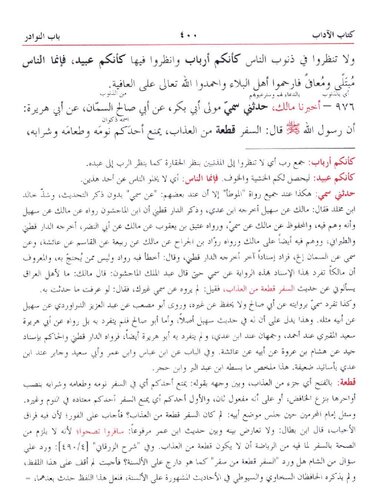 كتاب الآداب ٤٠٠ باب النوادر
ولا تنظروا في ذنوب الناس كأنكم أرباب وانظروا فيها كأنكم عبيد، فإنما الناس
مُبتلًى ومُعافًى فارحموا أهل البلاء واحمدوا الله تعالى على العافية.
٩٧٦ - أخبرنا مالك، حدثني سميّ مولى أبي بكر، عن أبي صالح السمّان، عن أبي هريرة:
أن رسول الله ﷺ قال: السفر قطعة من العذاب، يمنع أحدكم نومَه وطعامَه وشرابه،
كأنكم أرباب: جمع رب أي لا تنظروا إلى المذنبين بنظر الحقارة كما ينظر الرب إلى عبده.
كأنكم عبيد: ليحصل لكم الخشية والخوف. فإنما الناس: أي لا يخلو الناس عن أحد هذين.
حدثني سمي: هكذا عند جميع رواة "الموطأ" إلا أن عند بعضهم: "عن سمي" بدون ذكر التحديث، وشذّ خالد
ابن مخلد فقال: مالك عن سهيل أخرجه ابن عدي، وذكر الدار قطني أن ابن الماجشون رواه عن مالك عن سهيل
وأنه وهم فيه، والمحفوظ عن مالك عن سمي، ورواه عتيق بن يعقوب عن مالك عن أبي النضر، أخرجه الدار قطني
والطبراني، ووهم فيه أيضاً على مالك ورواه روّاد بن الجراح عن مالك عن ربيعة عن القاسم عن عائشة، وعن
سمي عن السمان إلخ، فزاد إسناداً آخر أخرجه الدار قطني، وقال: أخطأ فيه رواد وليس ممن يُحتج به، والمعروف
أن مالكاً تفرد هذا الإسناد هذه الرواية عن سمي حتى قال عبد الملك الماجشون: قال مالك: ما لأهل العراق
يسألوني عن حديث السفر قطعة من العذاب، فقيل: لم يروه عن سمي غيرك، فقال: لو عرفت ما حدثت به.
وكذا تفرد سمي بروايته عن أبي صالح ولا يحفظ عن غيره، وروى أبو مصعب عن عبد العزيز الدراوردي عن سهيل
عن أبيه مثله، وهذا يدل على أن له في حديث سهيل أصلاً، وأما أبو صالح فلم يتفرد به بل رواه عن أبي هريرة
سعيد المقبري عند أحمد، وجمهان عند ابن عدي، ولم يتفرد به أبو هريرة أيضاً، فرواه الدار قطني والحاكم بإسناد
جيد عن هشام بن عروة عن أبيه عن عائشة. وفي الباب عن ابن عباس وابن عمر وأبي سعيد وجابر عند ابن
عدي بأسانيد ضعيفة. هذا ملخص ما بسطه ابن عبد البر وابن حجر.
قطعة: بالفتح أي جزء من العذاب، وبين وجهه بقوله: يمنع أحدكم أي في السفر نومه وطعامه وشرابه بنصب
أواخرها بنزع الخافض، أو على أنه مفعول ثان، والأول أحدكم أي يمنع السفر أحدكم معتاده في النوم وغيره.
وسئل إمام الحرمين حين جلس موضع أبيه: لم كان السفر قطعة من العذاب؟ فأجاب على الفور: لأن فيه فراق
الأحباب، قال ابن بطال: ولا تعارض بينه وبين حديث ابن عمر مرفوعًا: سافروا تصحوا؛ لأنه لا يلزم من
الصحة بالسفر لما فيه من الرياضة أن لا يكون قطعة من العذاب. وفي "شرح الزرقاني" [٤٩٠/٤]: ورد علي
سؤال من الشام هل ورد "السفر قطعة من سقر" كما هو دارج على الألسنة؟ فأجبت لم أقف على هذا اللفظ،
ولم يذكره الحافظان السخاوي والسيوطي في الأحاديث المشهورة على الألسنة، فلعل هذا اللفظ حدث بعدهما، -